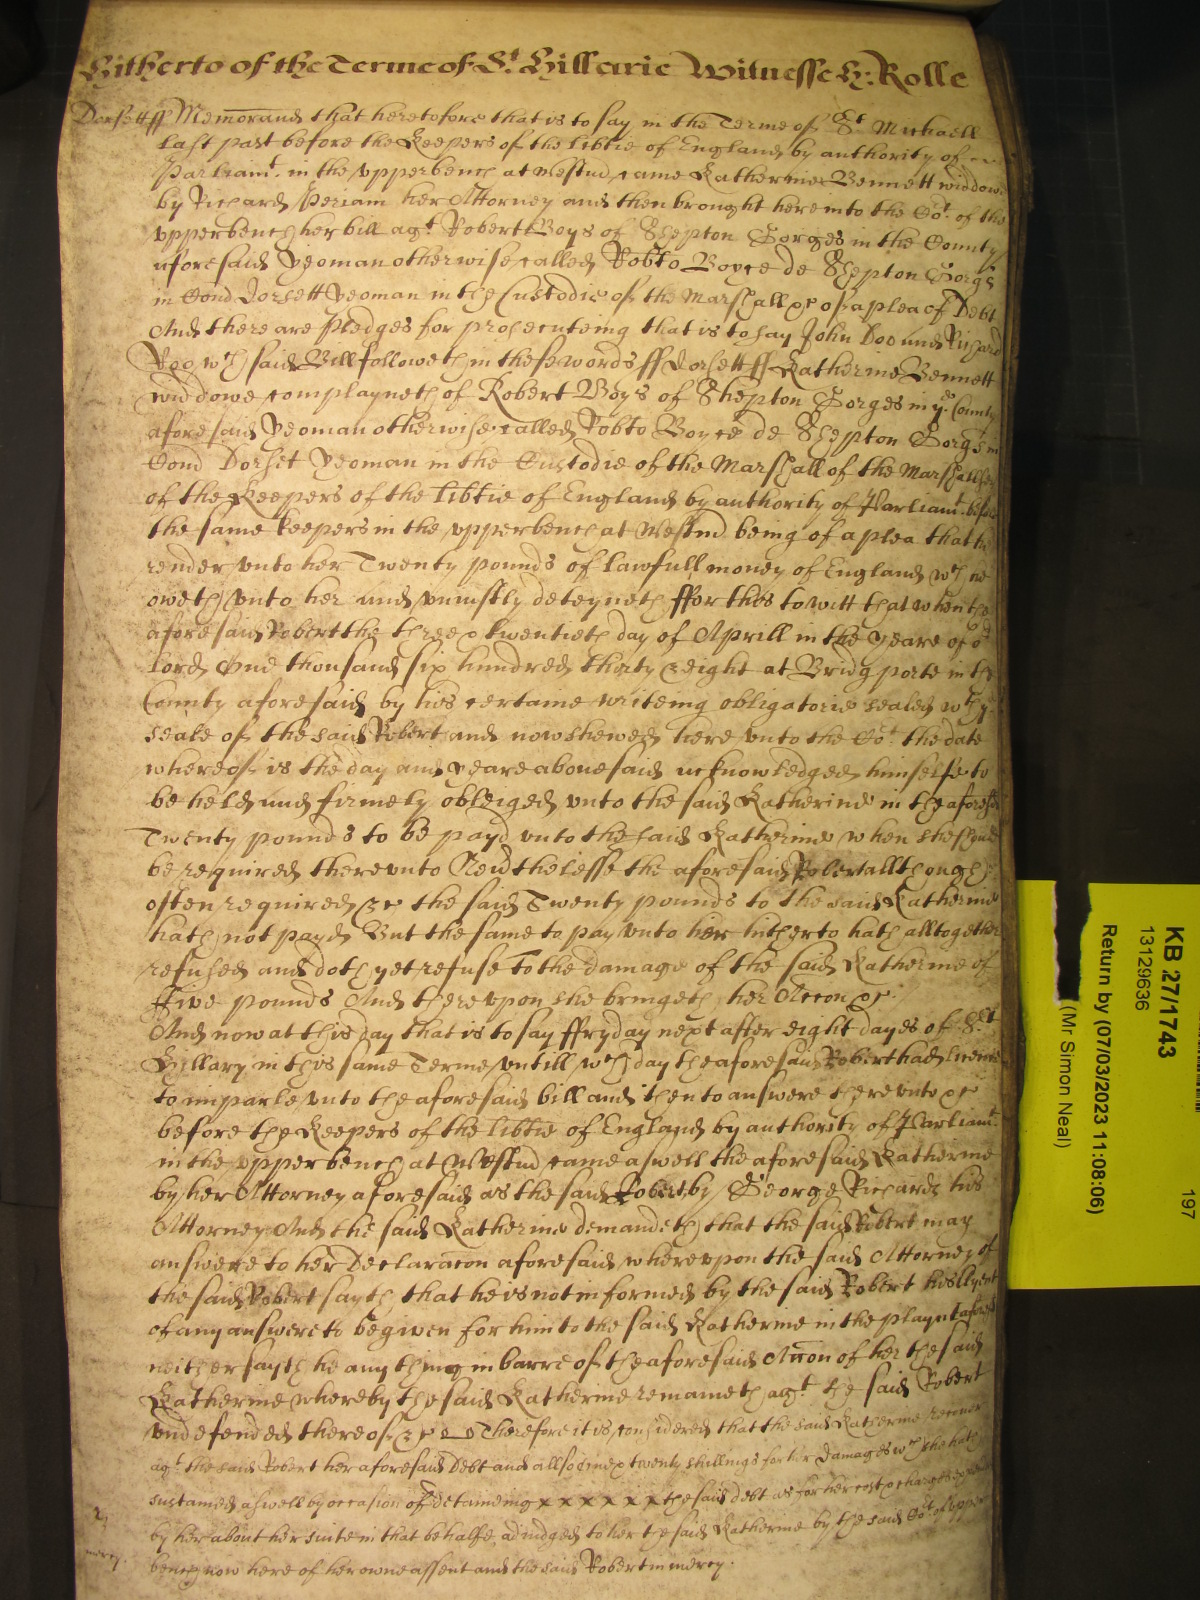 Hitherto of the Terme of St. Hillarie Witnesse H: Rolle
Dorsett ff Memorand that heretofore that is to say in the Terme of St Michaell
last past before the Keepers of the libtie of England by authority of
Parliamt. in the vpperbench at Westmd came Katherine Bennett widdow
by Richard Periam her Attorney and then brought here into the Cot. of the
vpperbench her bill agt. Robert Boys of Shepton Gorges in the County
aforesaid Yeoman otherwise called Robto Boyce de Shepton Gorgs
in Comd Dorsett Yeoman in the Custodie of the Marshall &c of a plea of Debt
And there are pledges for prosecuteing that is to say John Doo and Richard
Roo wch said Bill followeth in these words ff Dorsett ff Katherine Bennett
widdowe complayneth of Robert Boys of Shepton Gorges in ye. County
aforesaid Yeoman otherwise called Robto Boyce de Shepton Gorgs in
Comd Dorset Yeoman in the Custodie of the Marshall of the Marshallsea
of the Keepers of the libtie of England by authority of Parliamt. before
the same keepers in the vpperbench at Westmd being of a plea that he
render vnto her Twenty pounds of lawfull money of England wch he
oweth vnto her and vniustly deteyneth ffor this to witt that when the
aforesaid Robert the three & twentieth day of Aprill in the yeare of ot
lord One thousand six hundred thirty & eight at Bridgporte in the
County aforesaid by his certaine writeing obligatorie sealed wth ye
seale of the said Robert and now shewed here vnto the Cot. the date
whereof is the day and yeare abovesaid acknowledged himselfe to
be held and firmely obleiged vnto the said Katherine in the aforesd
Twenty pounds to be payd vnto the said Katherine when she should
be required therevnto Nevthelesse the aforesaid Robert allthough
often required &c the said Twenty pounds to the said Katherine
hath not payd But the same to pay vnto her hitherto hath alltogether
refused and doth yet refuse To the damage of the said Katherine of
ffive pounds And therevpon she bringeth her Accon &c.
And now at this day that is to say ffryday next after eight dayes of St
Hillary in this same Terme vntill wch day the aforesaid Robert had licence
to imparle vnto the aforesaid bill and then to answere therevnto &c
before the Keepers of the libtie of England by authority of Parliamt.
in the vpper bench at Westmd came aswell the aforesaid Katherine
by her Attorney aforesaid as the said Robert by George Richards his
Attorney And the said Katherine demandeth that the said Robert may
answere to her Declaracon aforesaid wherevpon the said Attorney of
the said Robert sayth that he is not informed by the said Robert his Clyent
of any answere to be given for him to the said Katherine in the playnt aforesd
neither sayth he any thing in barre of the aforesaid Accon of her the said
Katherine whereby the said Katherine remaineth agt. the said Robert
vndefended thereof &c Therefore it is considered that the said Katherine recover
agt. the said Robert her aforesaid Debt and allso twenty shillings for her damages wch she hath
sustained aswell by occasion of detaineing x x x x x x the said debt as for her cost & charges expended
by her about her suite in that behalfe adiudged to her the said Katherine by the said Cot. of vpper
bench now here of her owne assent and the said Robert in mercy.
mercy.
KB 27/1743
13129636
197
Return by (07/03/2023 11:08:06)
(Mr Simon Neal)